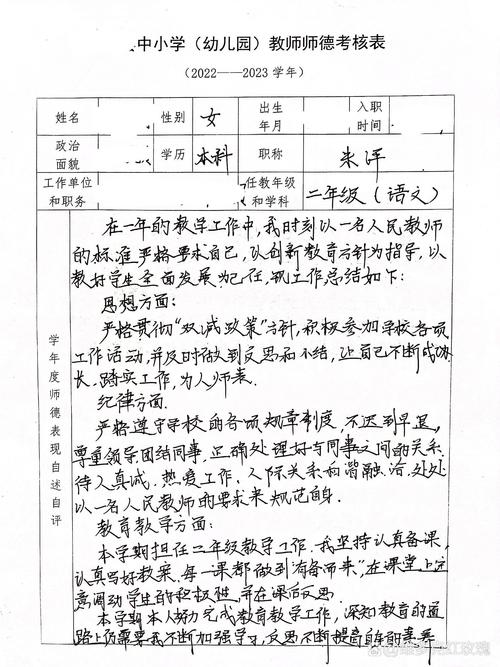 中小学（幼儿园）教师师德考核表
（2022——2023学年）
姓名 性别 女 出生年月 入职时间
政治面貌 学历 本科 职称 未评
工作单位和职务 任教年级和学科 二年级（语文）
学年度师德表现自述自评
在一年的教学工作中，我时刻以一名人民教师
的标准严格要求自己，以创新教育方针为指导，以
教好学生全面发展为己任，现工作总结如下：
思想方面：
严格贯彻“双减政策”方针，积极参加学校各项
工作活动，并及时做到反思和小结，让自己不断成
长，踏实工作，为人师表。
纪律方面.
严格遵守学校的各项规章制度，不迟到早退，
尊重领导团结同事，正确处理好与同事之间的关系.
待人真诚，热爱工作，人际关系和谐融洽，处处
以一名人民教师的要求来规范自身.
教育教学方面：
本学期担任二年级教学工作.我坚持认真备课，
认真写好教案.每一课都做到“有备而来”，在课堂上注
意调动学生的积极性，并在课后反思.
本学期本人努力完成教育教学工作，深知教育的道
路上仍需要我不断加强学习，反思不断提高自身的素养